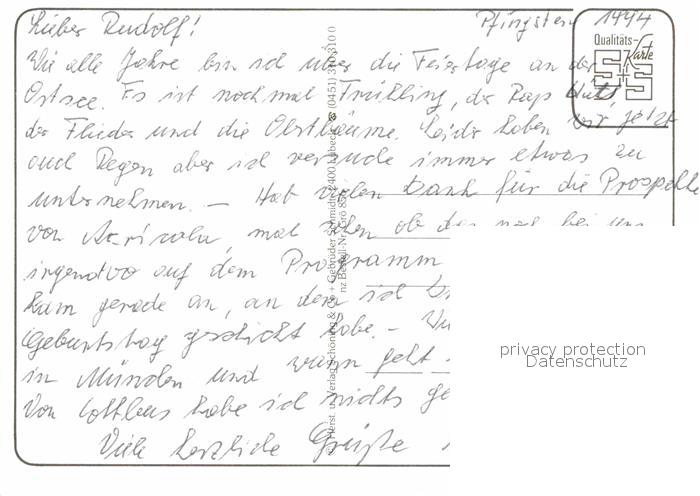 Lieber Rudolf!
Pfingsten 1994
Wie alle Jahre bin ich über die Feiertage an der
Ostsee. Es ist noch mal Frühling, der Raps blüht,
der Flieder und die Obstbäume. Leider haben wir jetzt
auch Regen aber ich versuche immer etwas zu
unternehmen. – Hab vielen Dank für die Prospekte
von mal sehen ob das noch bei uns
irgendwo auf dem Programm
kam gerade an, an dem ich
Geburtstag geschickt habe. –
in München und wann geht
Von Cottbus habe ich nichts ge
Viele herzliche Grüße
Qualitäts-
Karte
S+S
Herst. u. Verlag Schöning & Co + Gebrüder Schmidt, 2400 Lübeck, ☎ (0451) 310310 0
privacy protection
Datenschutz